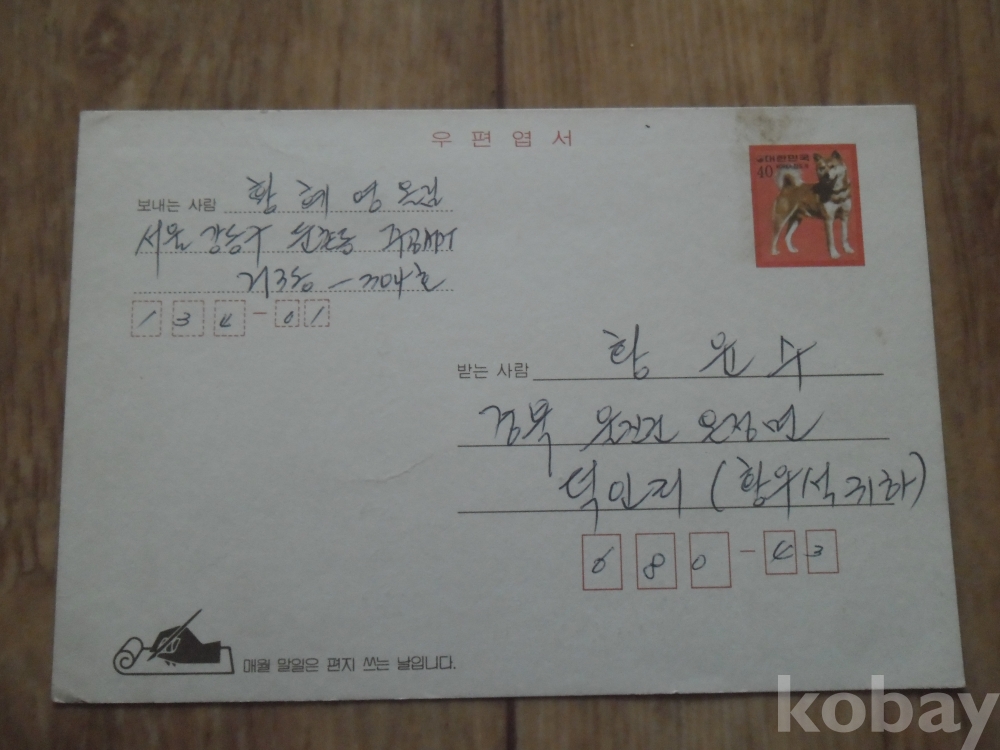 우편엽서
대한민국
40 KOREA
보내는 사람 황 혜 영 올림
서울 강동구 둔촌동 주공APT
313동 - 304호
134-01
받는 사람 황 윤 수
경북 울진군 온정면
덕인리 (황우석 귀하)
680-43
매월 말일은 편지 쓰는 날입니다.
kobay